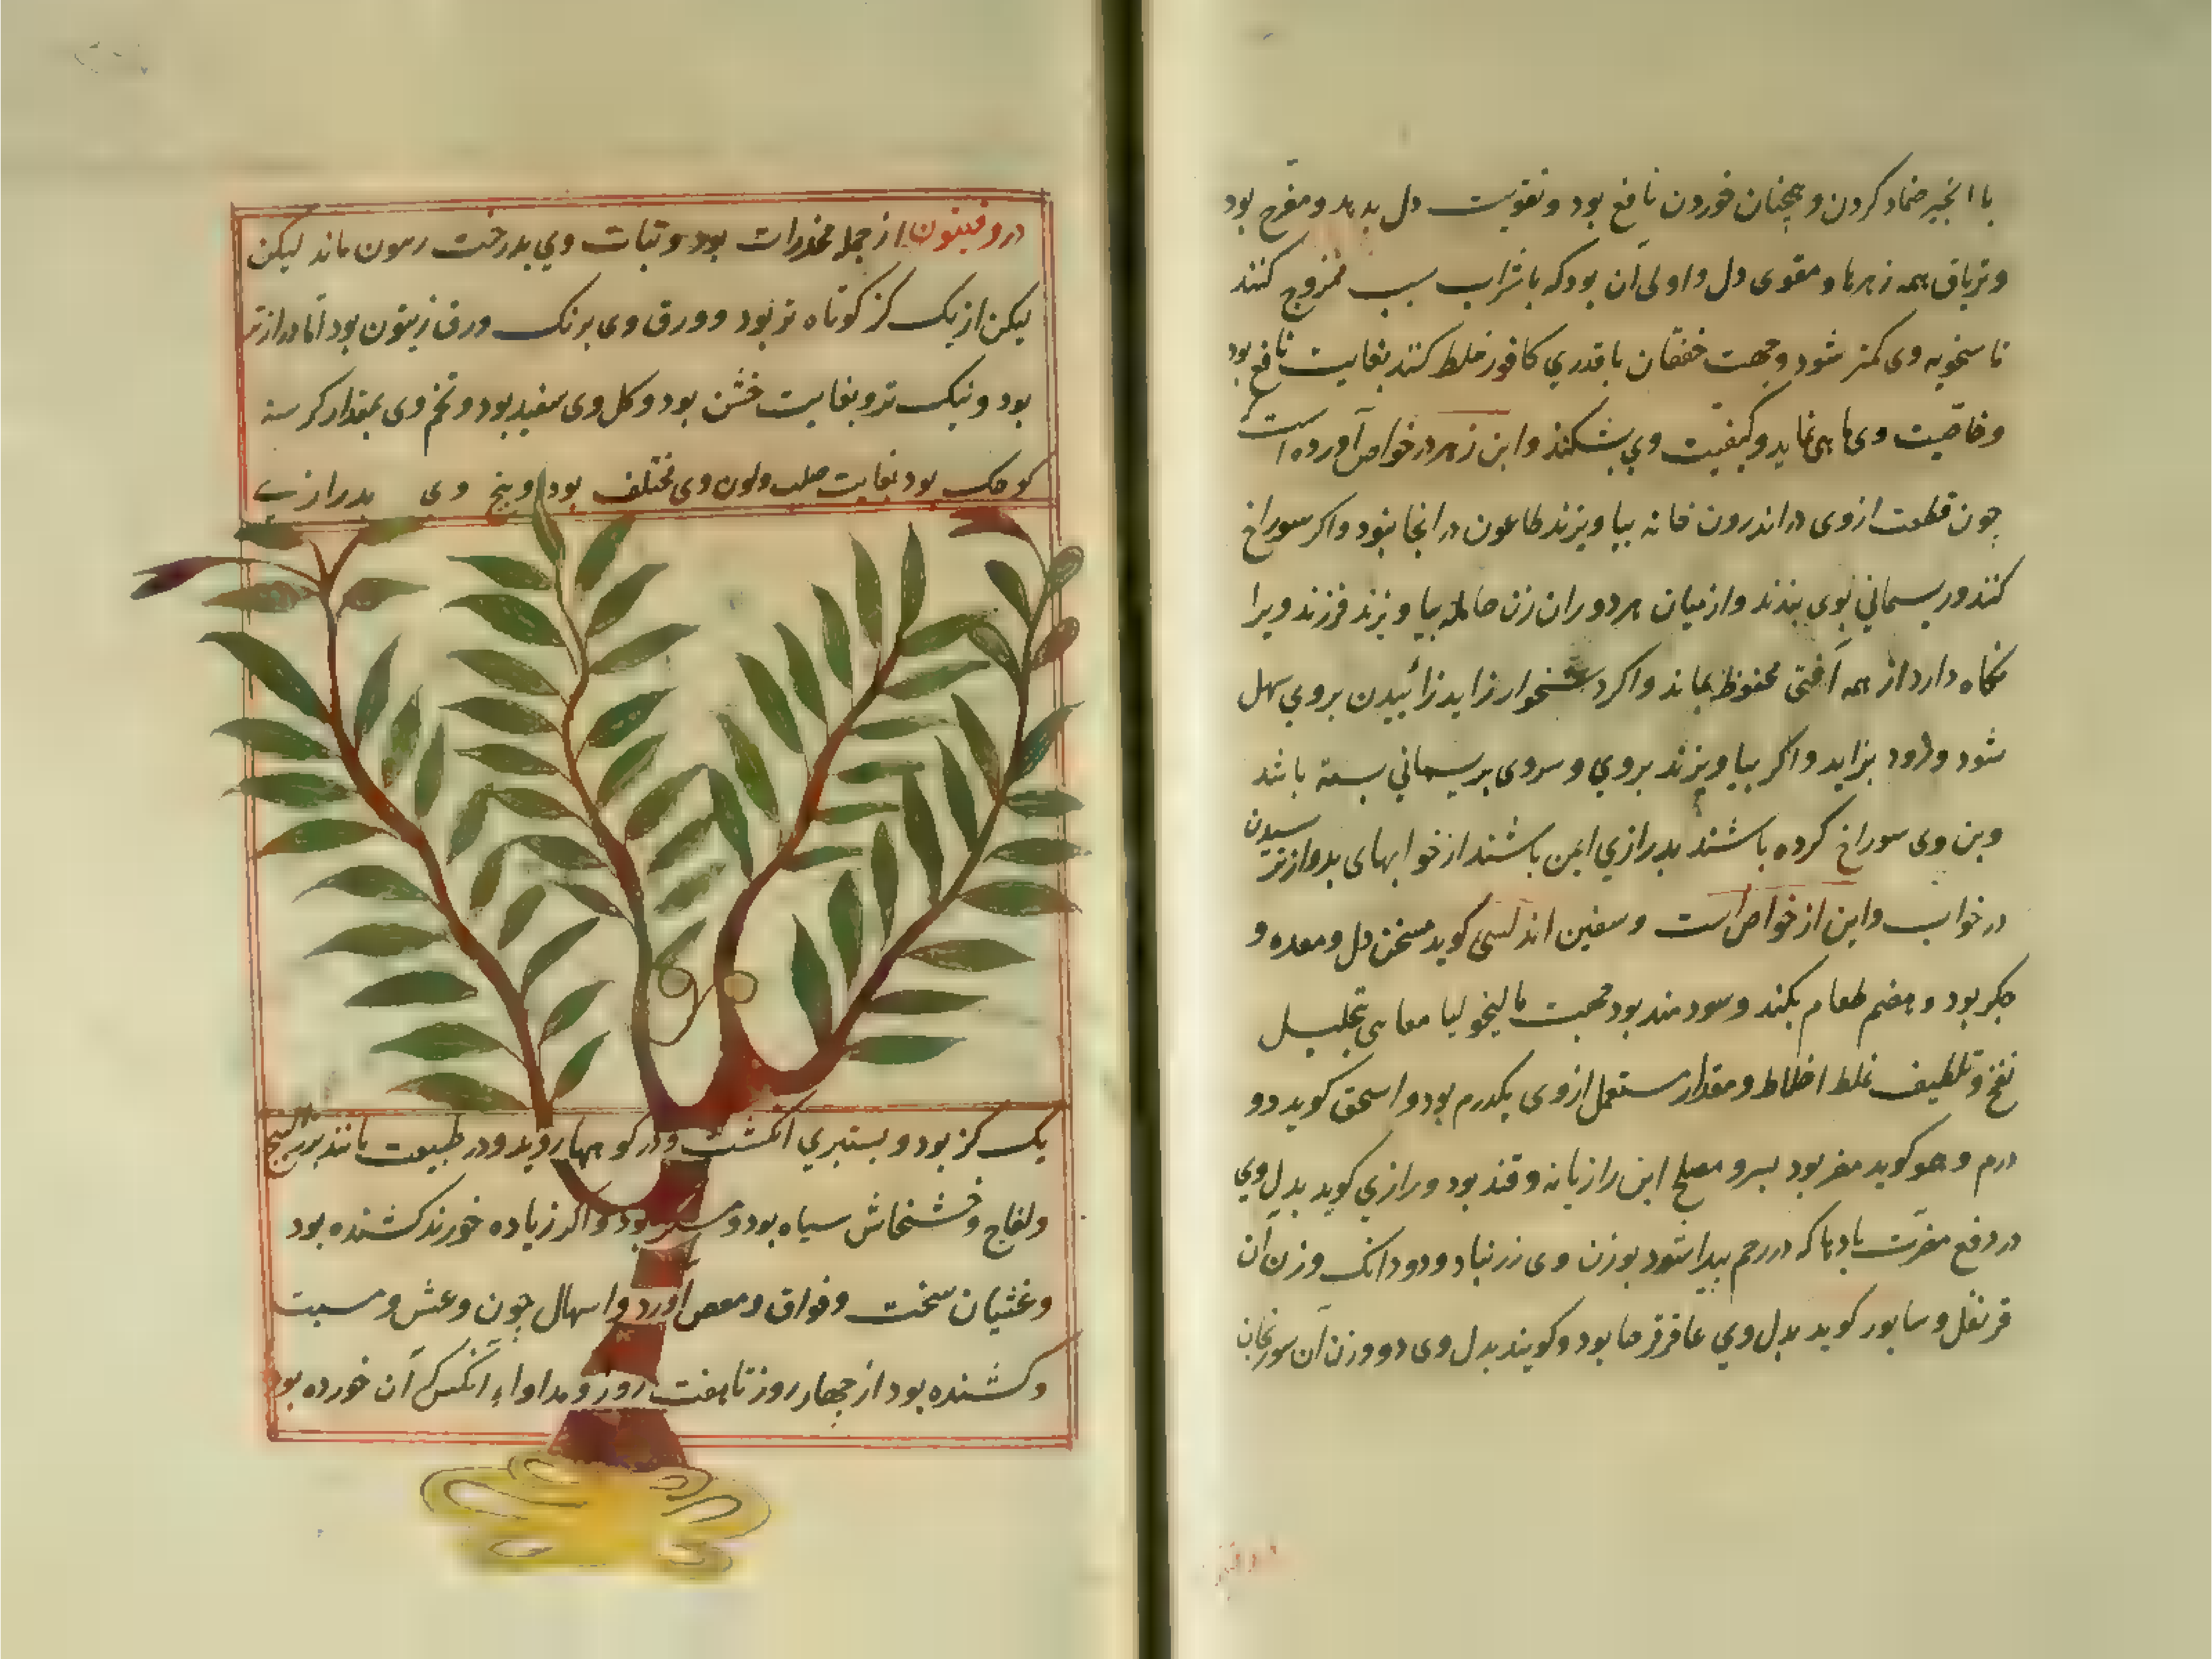 با انجیر ضماد کردن و همچنان خوردن نافع بود و تقویت دل بدهد و مفرح بود
و تریاق همه زهرها و مقوی دل و اولی آن بود که با شراب سیب ممزوج کنند
تا سخونه وی کمتر شود و جهت خفقان با قدری کافور خلط کنند بغایت نافع بود
و خاصیت وی می نماید و کیفیت وی بشکند و ابن زهر در خواص آورده است
چون قطعت از وی در اندرون خانه بیاویزند طاعون در انجا نبود و اکر سوراخ
کنند و ریسمانی بوی بندند و از میان هر دو ران زن حامله بیاویزند فرزند ویرا
نکاه دارد از همه آفتی محفوظ بماند و اکر دشخوار زاید زائیدن بروی سهل
شود و زود بزاید و اکر بیاویزند بروی و سر وی بریسمانی بسته باشد
و بن وی سوراخ کرده باشند بدرازی ایمن باشند از خوابهای بد و از ترسیدن
در خواب و این از خواص است و سفین اندلسی کوید مسخن دل و معده و
جکر بود و هضم طعام بکند و سودمند بود جهت مالیخولیا معایی تحلیل
نفخ و تلطیف غلظ اخلاط و مقدار مستعمل از وی یکدرم بود و اسحق کوید دو
درم و هو کوید مضر بود بسر و مصلح این رازیانه و قند بود و رازی کوید بدل وی
در دفع مضرت بادها که در رحم پیدا شود بوزن وی زرنباد و دو دانک وزن آن
قرنفل و سابور کوید بدل وی عاقرقرحا بود و کویند بدل وی دو وزن آن سورنجان
دروفینون از جمله مخدرات بود و نبات وی بدرخت رسون ماند لیکن
لیکن از یک کز کوتاه تر بود و ورق وی برنک ورق زیتون بود اما درازتر
بود و نیک تر و بغایت خشن بود و کل وی سفید بود و تخم وی بمقدار کرسنه
کوچک بود بغایت صلب و لون وی مختلف بود و بیخ وی بدرازی
یک کز بود و بستبری انکشت و در کوهها روید و در طبیعت مانند بزر البنج
و لفاح و خشخاش سیاه بود و مسکر بود و اکر زیاده خورند کشنده بود
و غثیان سخت و فواق و مغص آورد و اسهال چون و غش و سبت
و کشنده بود از چهار روز تا هفت روز و مداواء انکس آن خورده بود